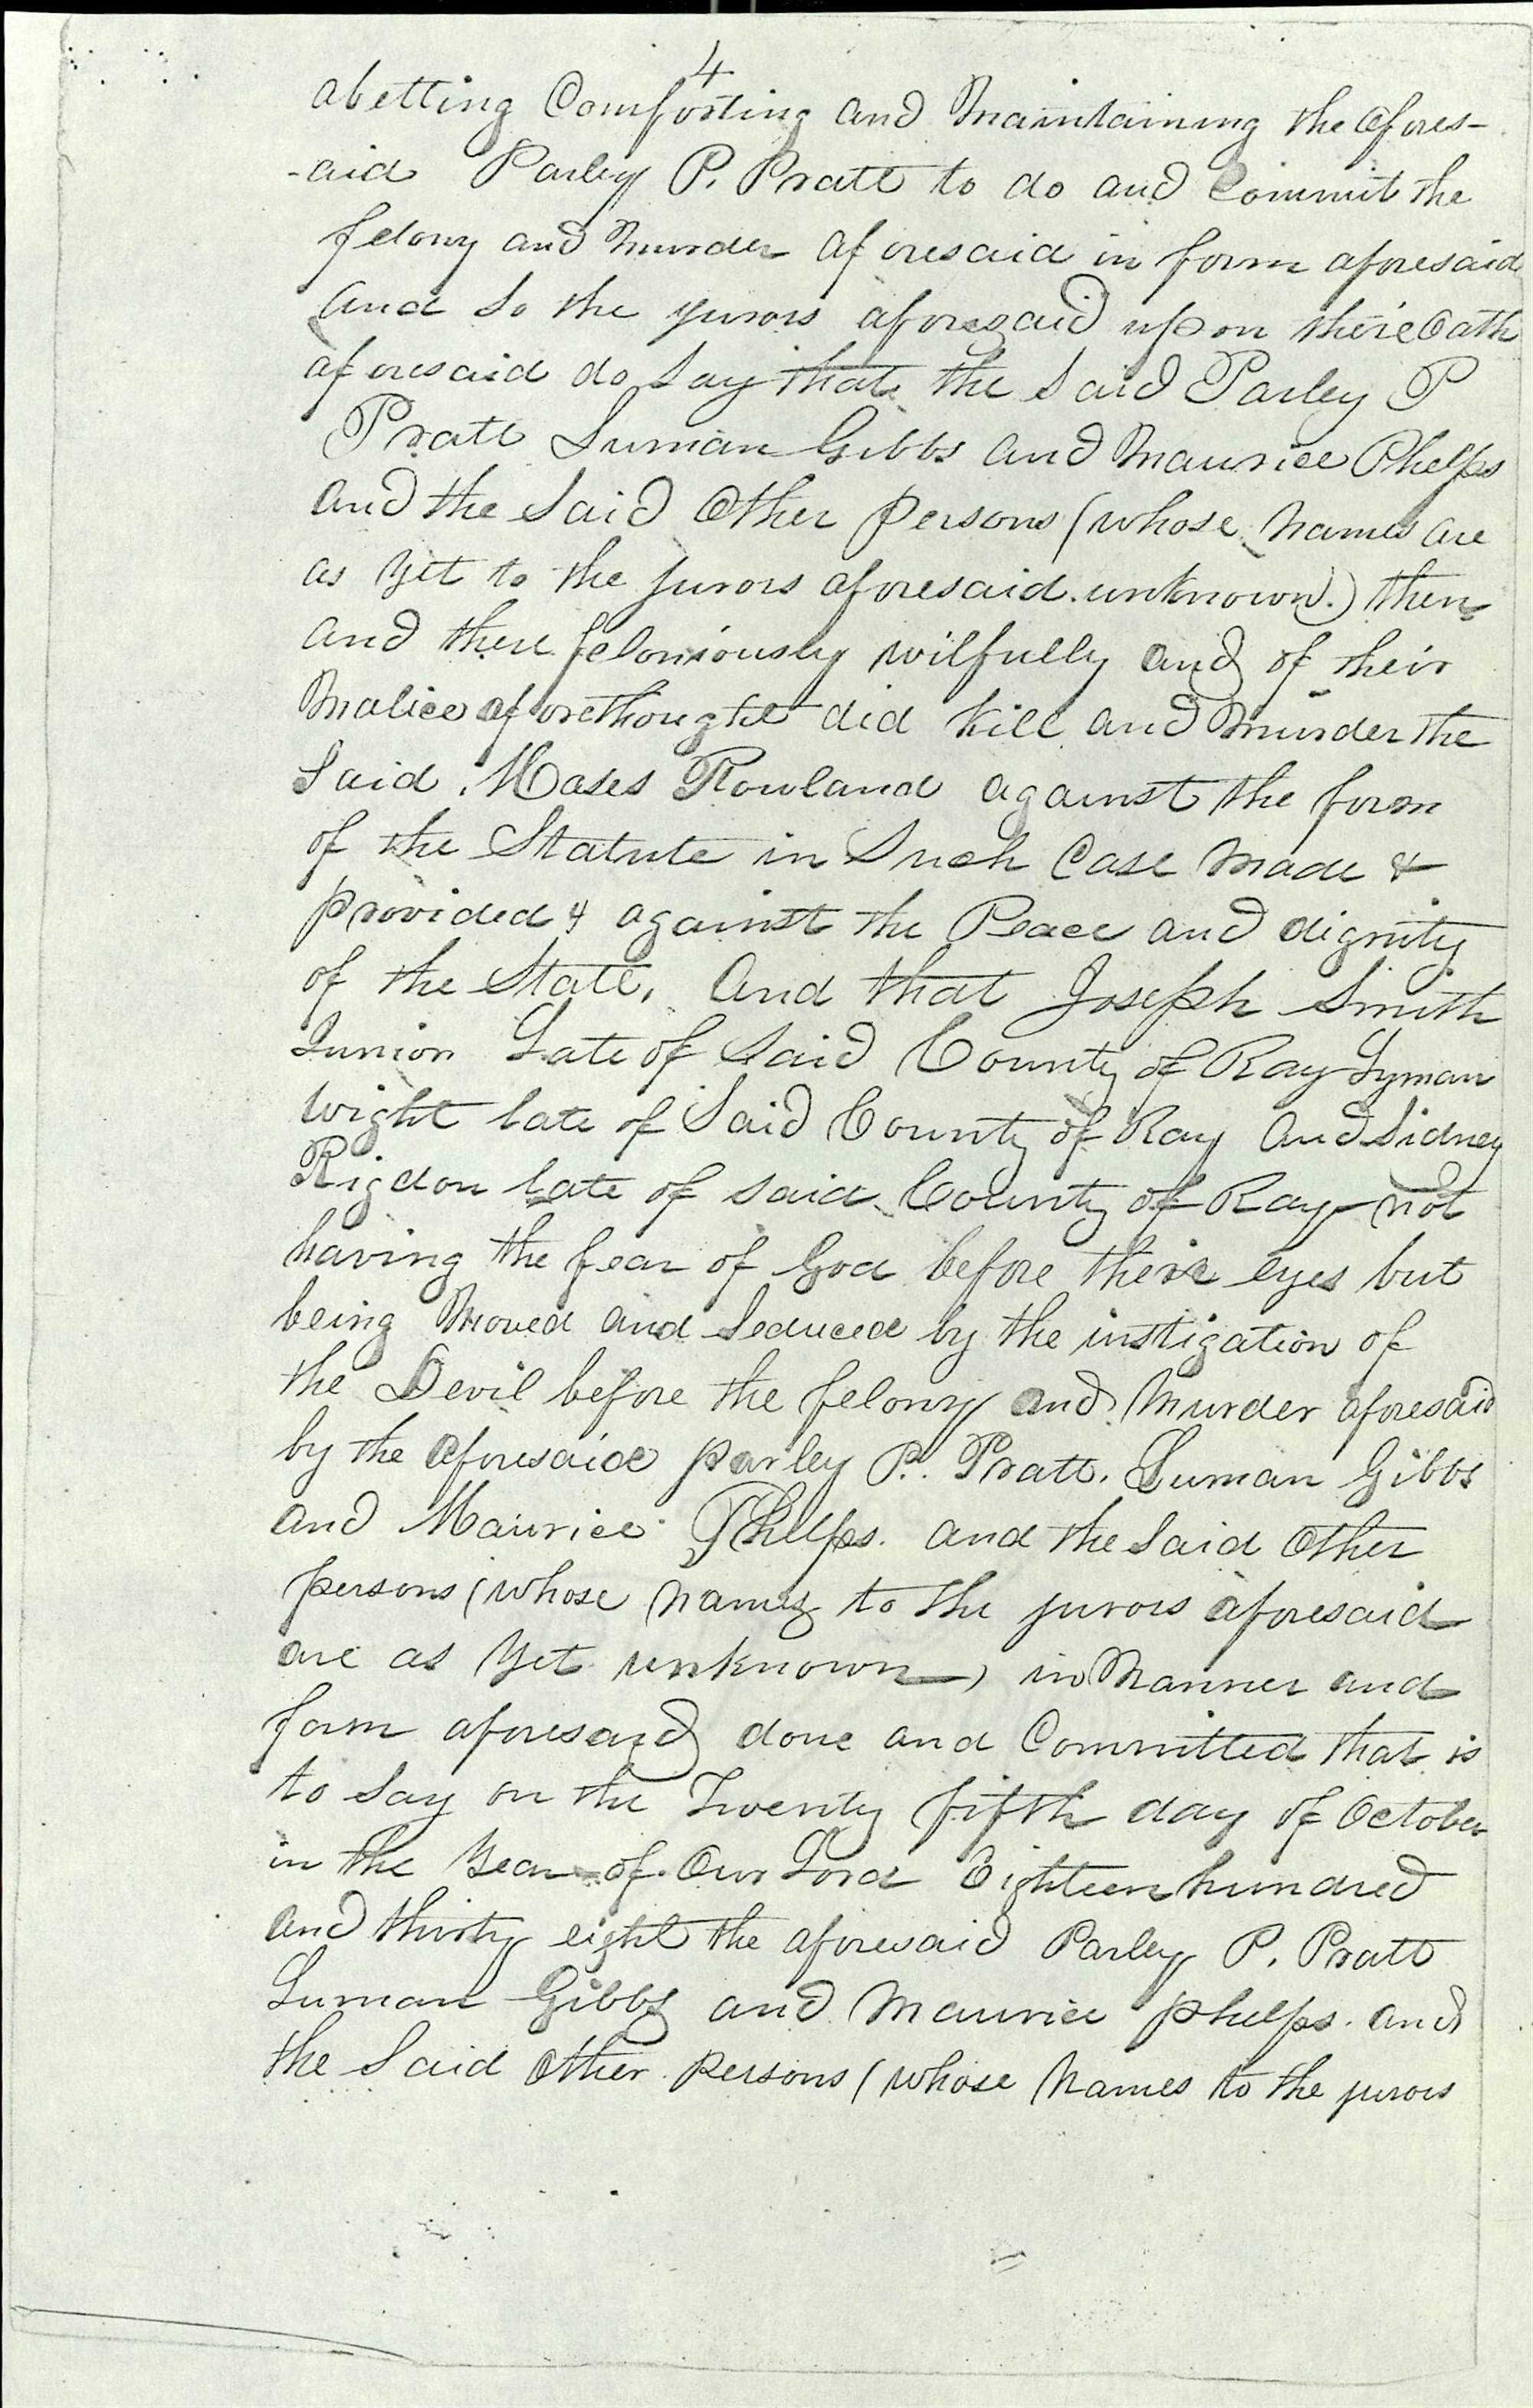 4
abetting Comforting and Maintaining the afores-
-aid Parley P. Pratt to do and Commit the
felony and Murder aforesaid in form aforesaid
And So the jurors aforesaid upon theire Oath
aforesaid do Say that the Said Parley P
Pratt Luman Gibbs and Maurice Phelps
and the Said Other Persons (whose Names are
as yet to the jurors aforesaid unknown.) then
and there feloniously wilfully and of their
Malice aforethought did kill and Murder the
Said Moses Rowland against the form
of the Statute in Such Case Made &
provided & against the Peace and dignity
of the State, And that Joseph Smith
Junior Late of Said County of Ray Lyman
Wight late of Said County of Ray And Sidney
Rigdon late of said County of Ray not
having the fear of God before their eyes but
being Moved and Seduced by the instigation of
the Devil before the felony and Murder aforesaid
by the aforesaid parley P. Pratt. Luman Gibbs
and Maurice Phelps. and the Said Other
persons (whose names to the jurors aforesaid
are as yet unknown) in Manner and
form aforesaid done and Committed that is
to Say on the Twenty fifth day of October
in the Year of Our Lord Eighteen hundred
and thirty eight the aforesaid Parley P. Pratt
Luman Gibbs and Maurice phelps. and
the Said Other persons (whose Names to the jurors